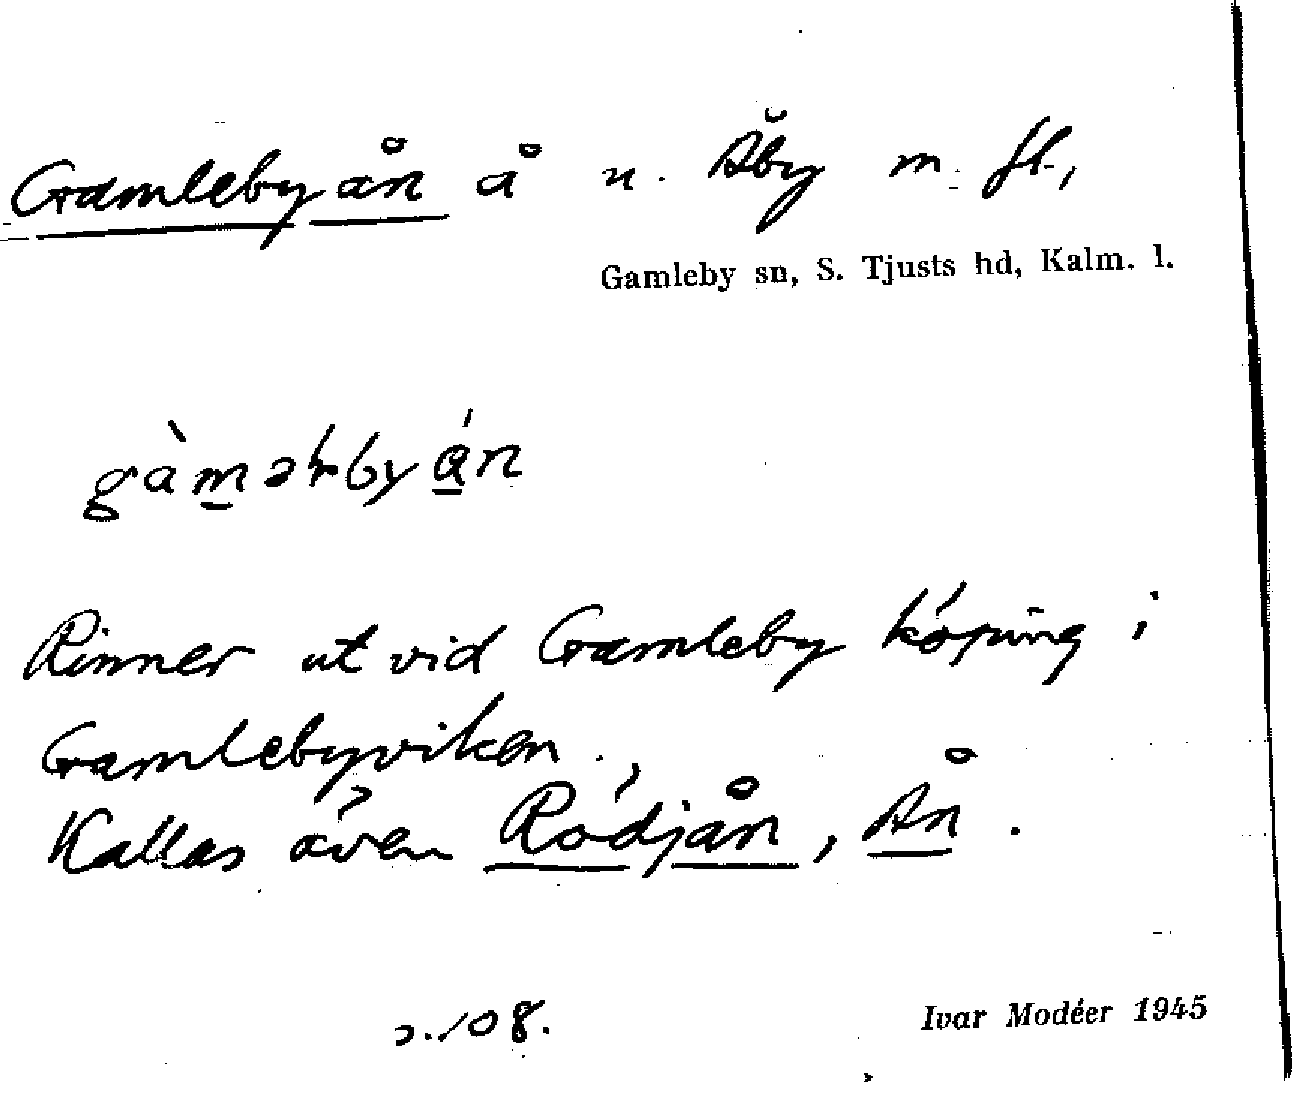 Gamlebyån å n. Åby m. fl.,
Gamleby sn, S. Tjusts hd, Kalm. l.
Rinner ut vid Gamleby köping i
Gamlebyviken.
Kallas även Rödjån, Ån.
s. 108.
Ivar Modéer 1945